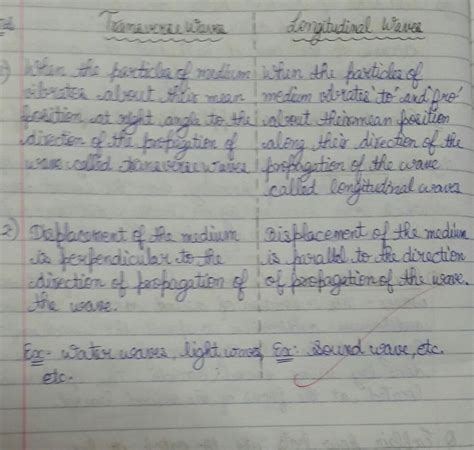 Transverse Waves Longitudinal Waves
1) When the particles of medium When the particles of
vibrates about their mean medium vibrates 'to' and 'fro'
position at right angle to the about their mean position
direction of the propagation of along their direction of the
wave called transverse waves propagation of the wave
called longitudinal waves
2) Displacement of the medium Displacement of the medium
is perpendicular to the is parallel to the direction
direction of propagation of of propagation of the wave.
the wave.
Ex- Water waves, light waves, Ex:- Sound wave, etc.
etc.